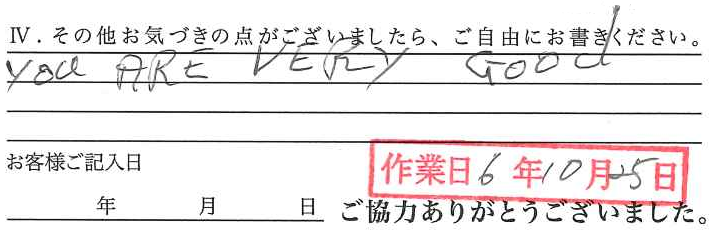 Ⅳ．その他お気づきの点がございましたら、ご自由にお書きください。
you ARE VERY GOOd
お客様ご記入日
作業日6年10月25日
年 月 日
ご協力ありがとうございました。